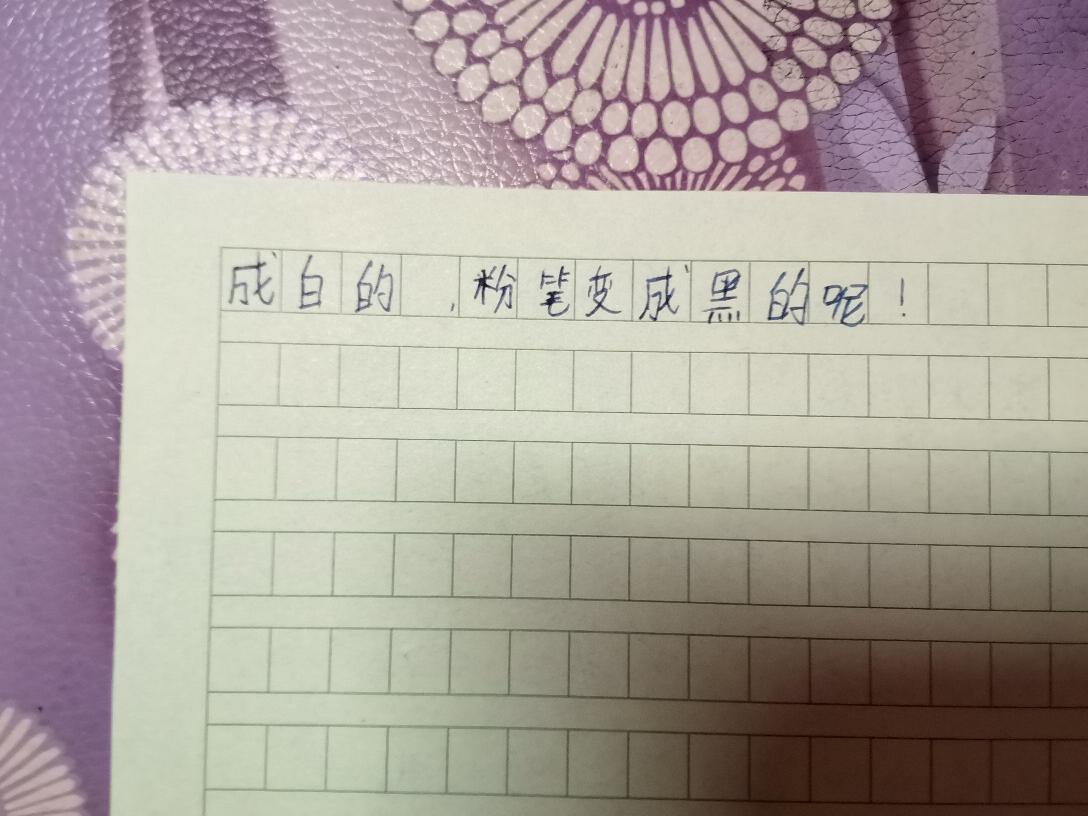 成白的,粉笔变成黑的呢!